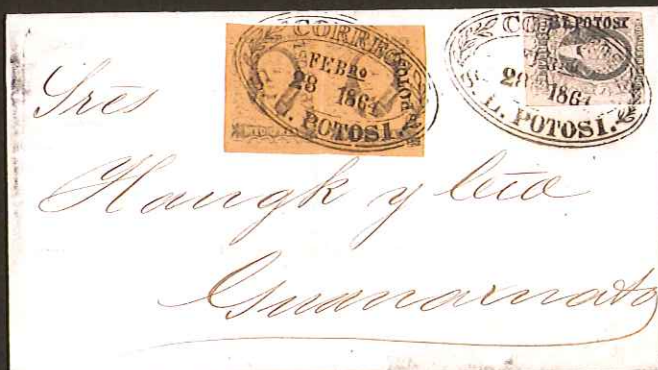 CORREOS
FEBRO
28 1861
S. L. POTOSI.
L. POTOSI
28 1861
S. L. POTOSI.
Sres
Haugk y Cia
Guanaxuato